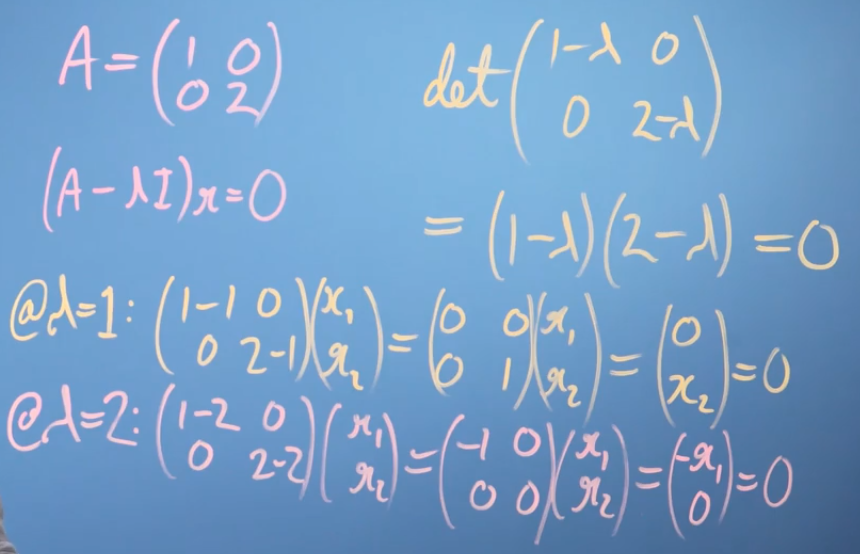 A = (1 0
0 2)
det (1-λ 0
0 2-λ)
(A - λI)x = 0
= (1-λ)(2-λ) = 0
@λ=1: (1-1 0
0 2-1)(x₁
x₂) = (0 0
0 1)(x₁
x₂) = (0
x₂) = 0
@λ=2: (1-2 0
0 2-2)(x₁
x₂) = (-1 0
0 0)(x₁
x₂) = (-x₁
0) = 0